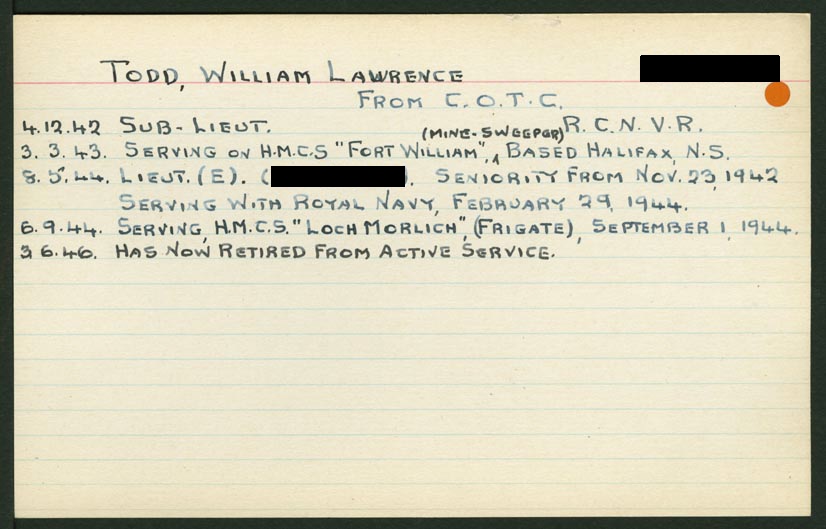 TODD, WILLIAM LAWRENCE
FROM C.O.T.C.
4.12.42 SUB-LIEUT. (MINE-SWEEPER) R.C.N.V.R.
3.3.43. SERVING ON H.M.C.S "FORT WILLIAM", BASED HALIFAX, N.S.
8.5.44. LIEUT. (E). ( ). SENIORITY FROM NOV. 23, 1942
SERVING WITH ROYAL NAVY, FEBRUARY 29, 1944.
6.9.44. SERVING, H.M.C.S. "LOCH MORLICH", (FRIGATE), SEPTEMBER 1, 1944.
3 6.46. HAS NOW RETIRED FROM ACTIVE SERVICE.